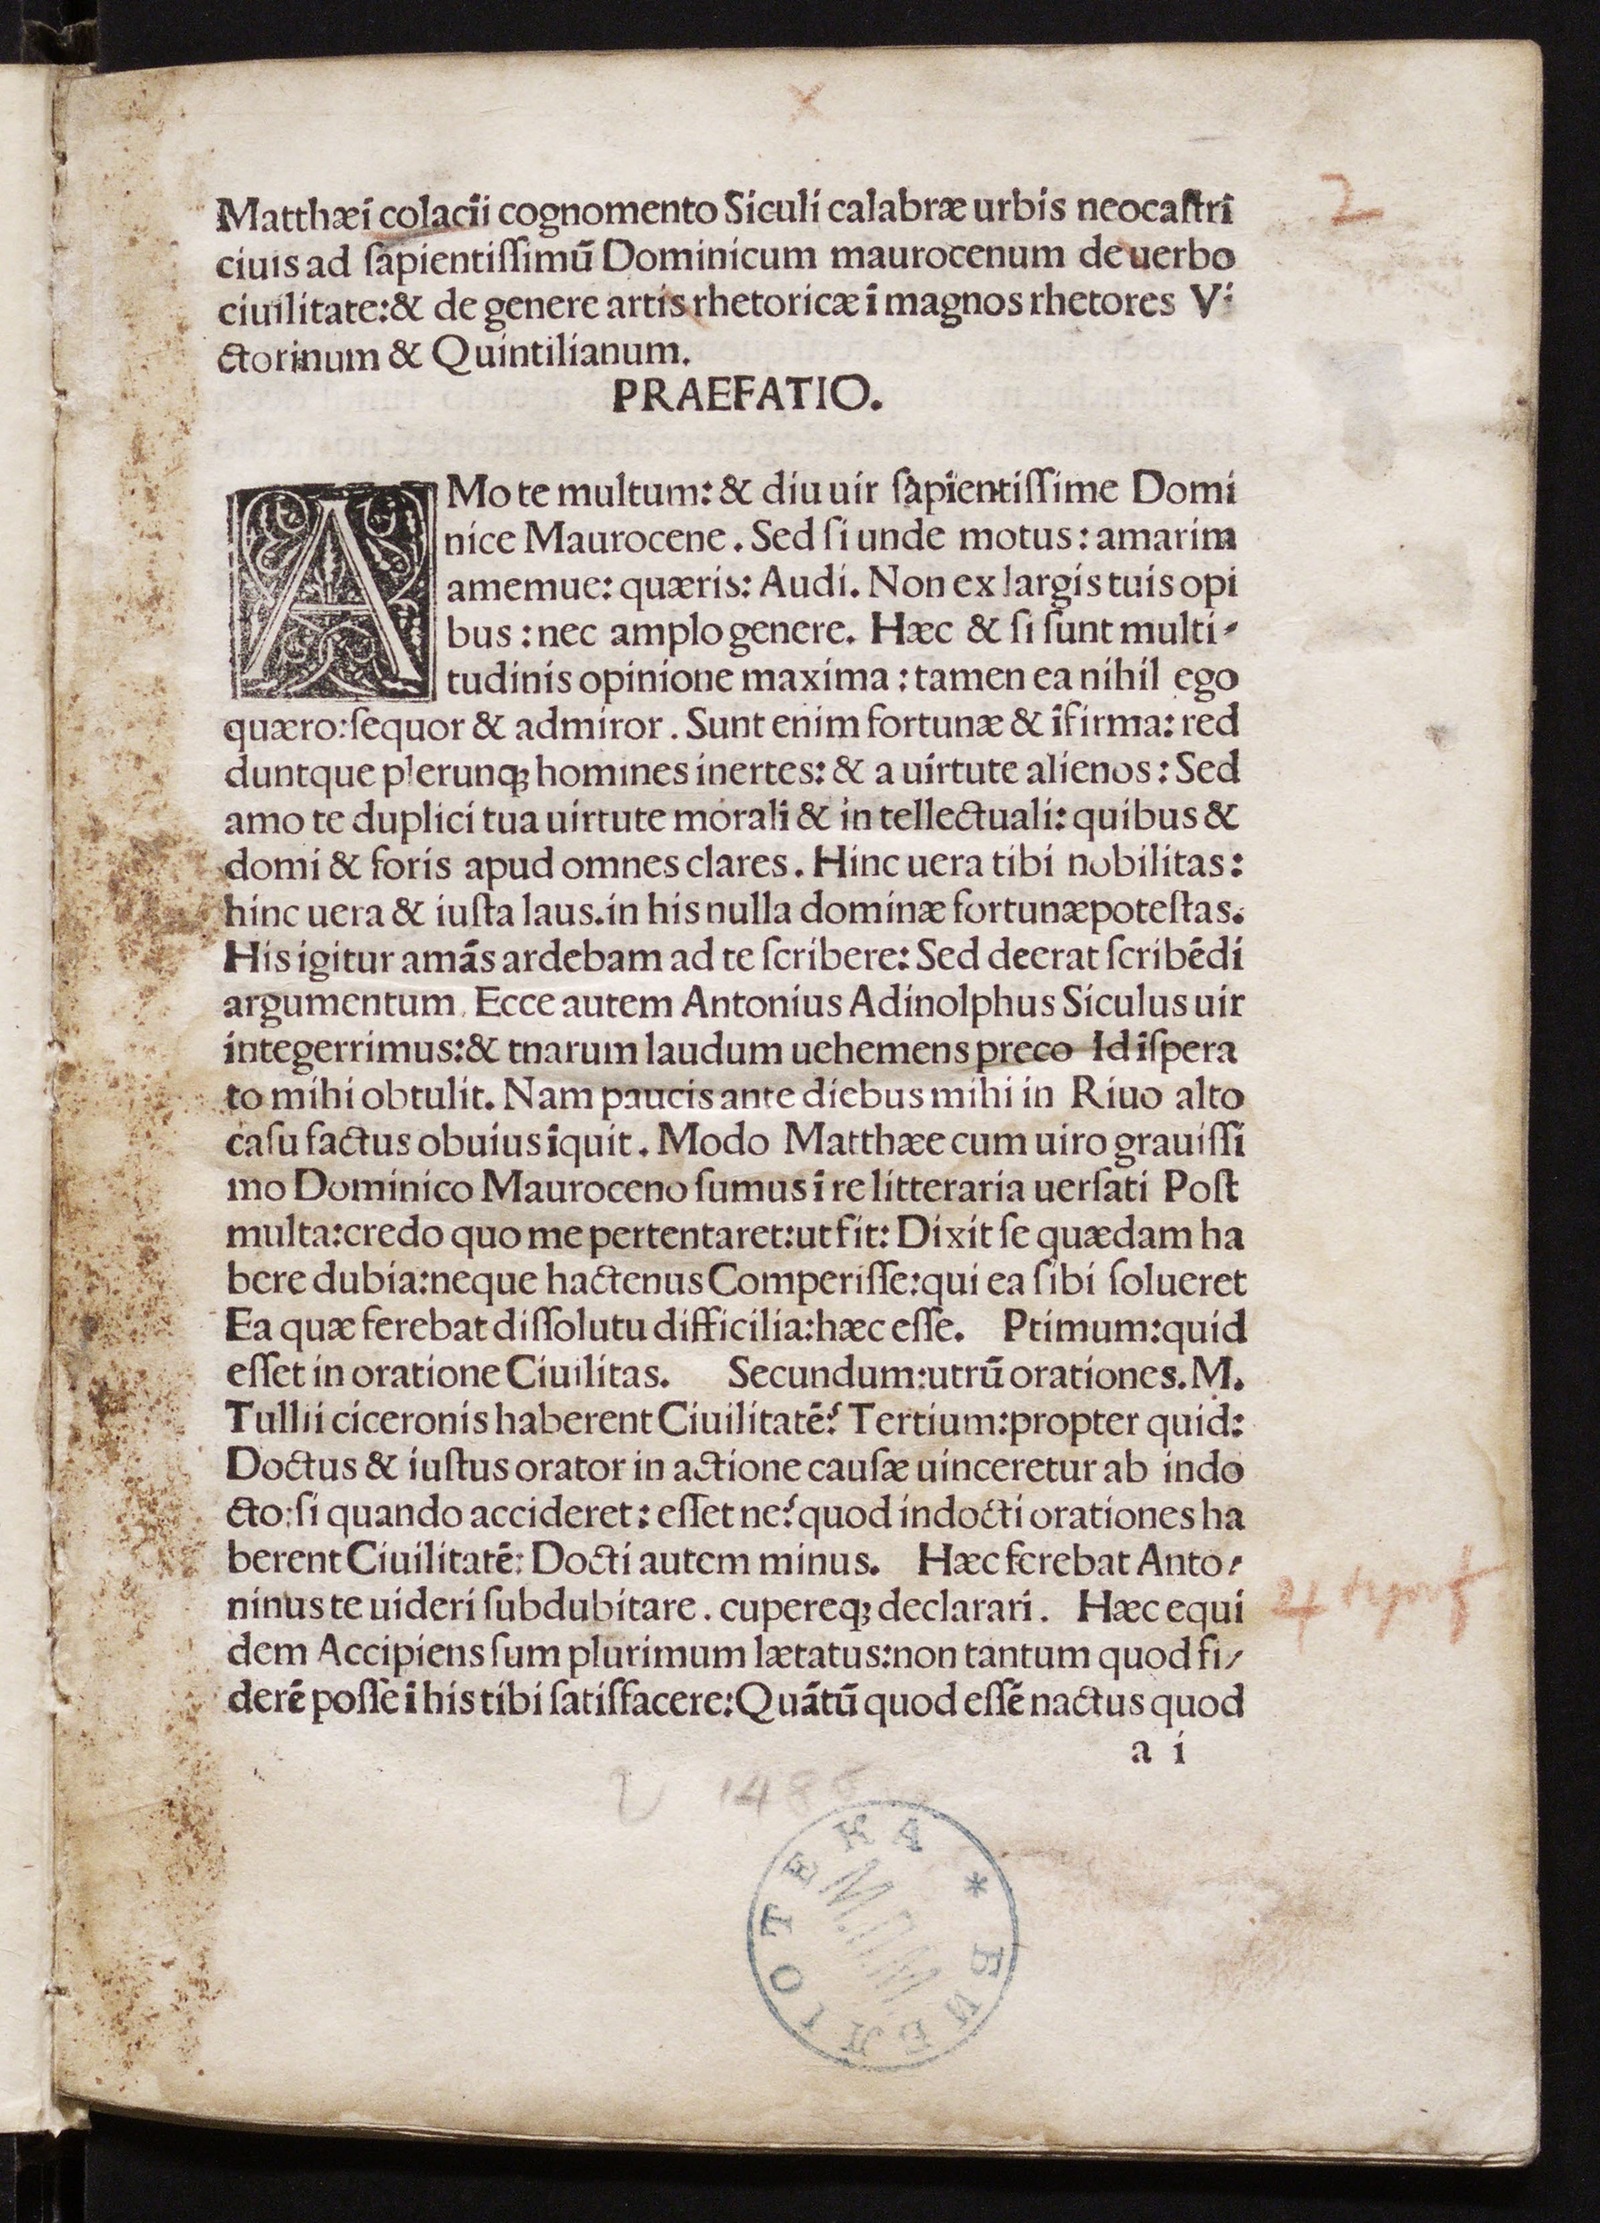 2
Matthæi colacii cognomento Siculi calabræ urbis neocaſtri
ciuis ad ſapientiſſimū Dominicum maurocenum de uerbo
ciuilitate:& de genere artis rhetoricæ ī magnos rhetores Vi
ctorinum & Quintilianum.
PRAEFATIO.
AMo te multum: & diu uir ſapientiſſime Domi
nice Maurocene. Sed ſi unde motus: amarim
amemue: quæris: Audi. Non ex largis tuis opi
bus: nec amplo genere. Hæc & ſi ſunt multi-
tudinis opinione maxima: tamen ea nihil ego
quæro:ſequor & admiror. Sunt enim fortunæ & īfirma: red
duntque plerunqꝫ homines inertes: & a uirtute alienos: Sed
amo te duplici tua uirtute morali & in tellectuali: quibus &
domi & foris apud omnes clares. Hinc uera tibi nobilitas:
hinc uera & iuſta laus.in his nulla dominæ fortunæpoteſtas.
His igitur amās ardebam ad te ſcribere: Sed deerat ſcribēdi
argumentum. Ecce autem Antonius Adinolphus Siculus uir
integerrimus:& tnarum laudum uehemens preco Id iſpera
to mihi obtulit. Nam paucis ante diebus mihi in Riuo alto
caſu factus obuius īquit. Modo Matthæe cum uiro grauiſſi
mo Dominico Mauroceno ſumus ī re litteraria uerſati Poſt
multa:credo quo me pertentaret:ut fit: Dixit ſe quædam ha
bere dubia:neque hactenus Comperiſſe:qui ea ſibi ſolueret
Ea quæ ferebat diſſolutu difficilia:hæc eſſe. Ptimum:quid
eſſet in oratione Ciuilitas. Secundum:utrū orationes.M.
Tullii ciceronis haberent Ciuilitatē? Tertium:propter quid:
Doctus & iuſtus orator in actione cauſæ uinceretur ab indo
cto:ſi quando accideret: eſſet ne? quod indocti orationes ha
berent Ciuilitatē: Docti autem minus. Hæc ferebat Anto-
ninus te uideri ſubdubitare. cupereqꝫ declarari. Hæc equi
dem Accipiens ſum plurimum lætatus:non tantum quod fi-
derē poſſe ī his tibi ſatiſfacere:Quātū quod eſſē nactus quod
a i
1486
БИБЛІОТЕКА *